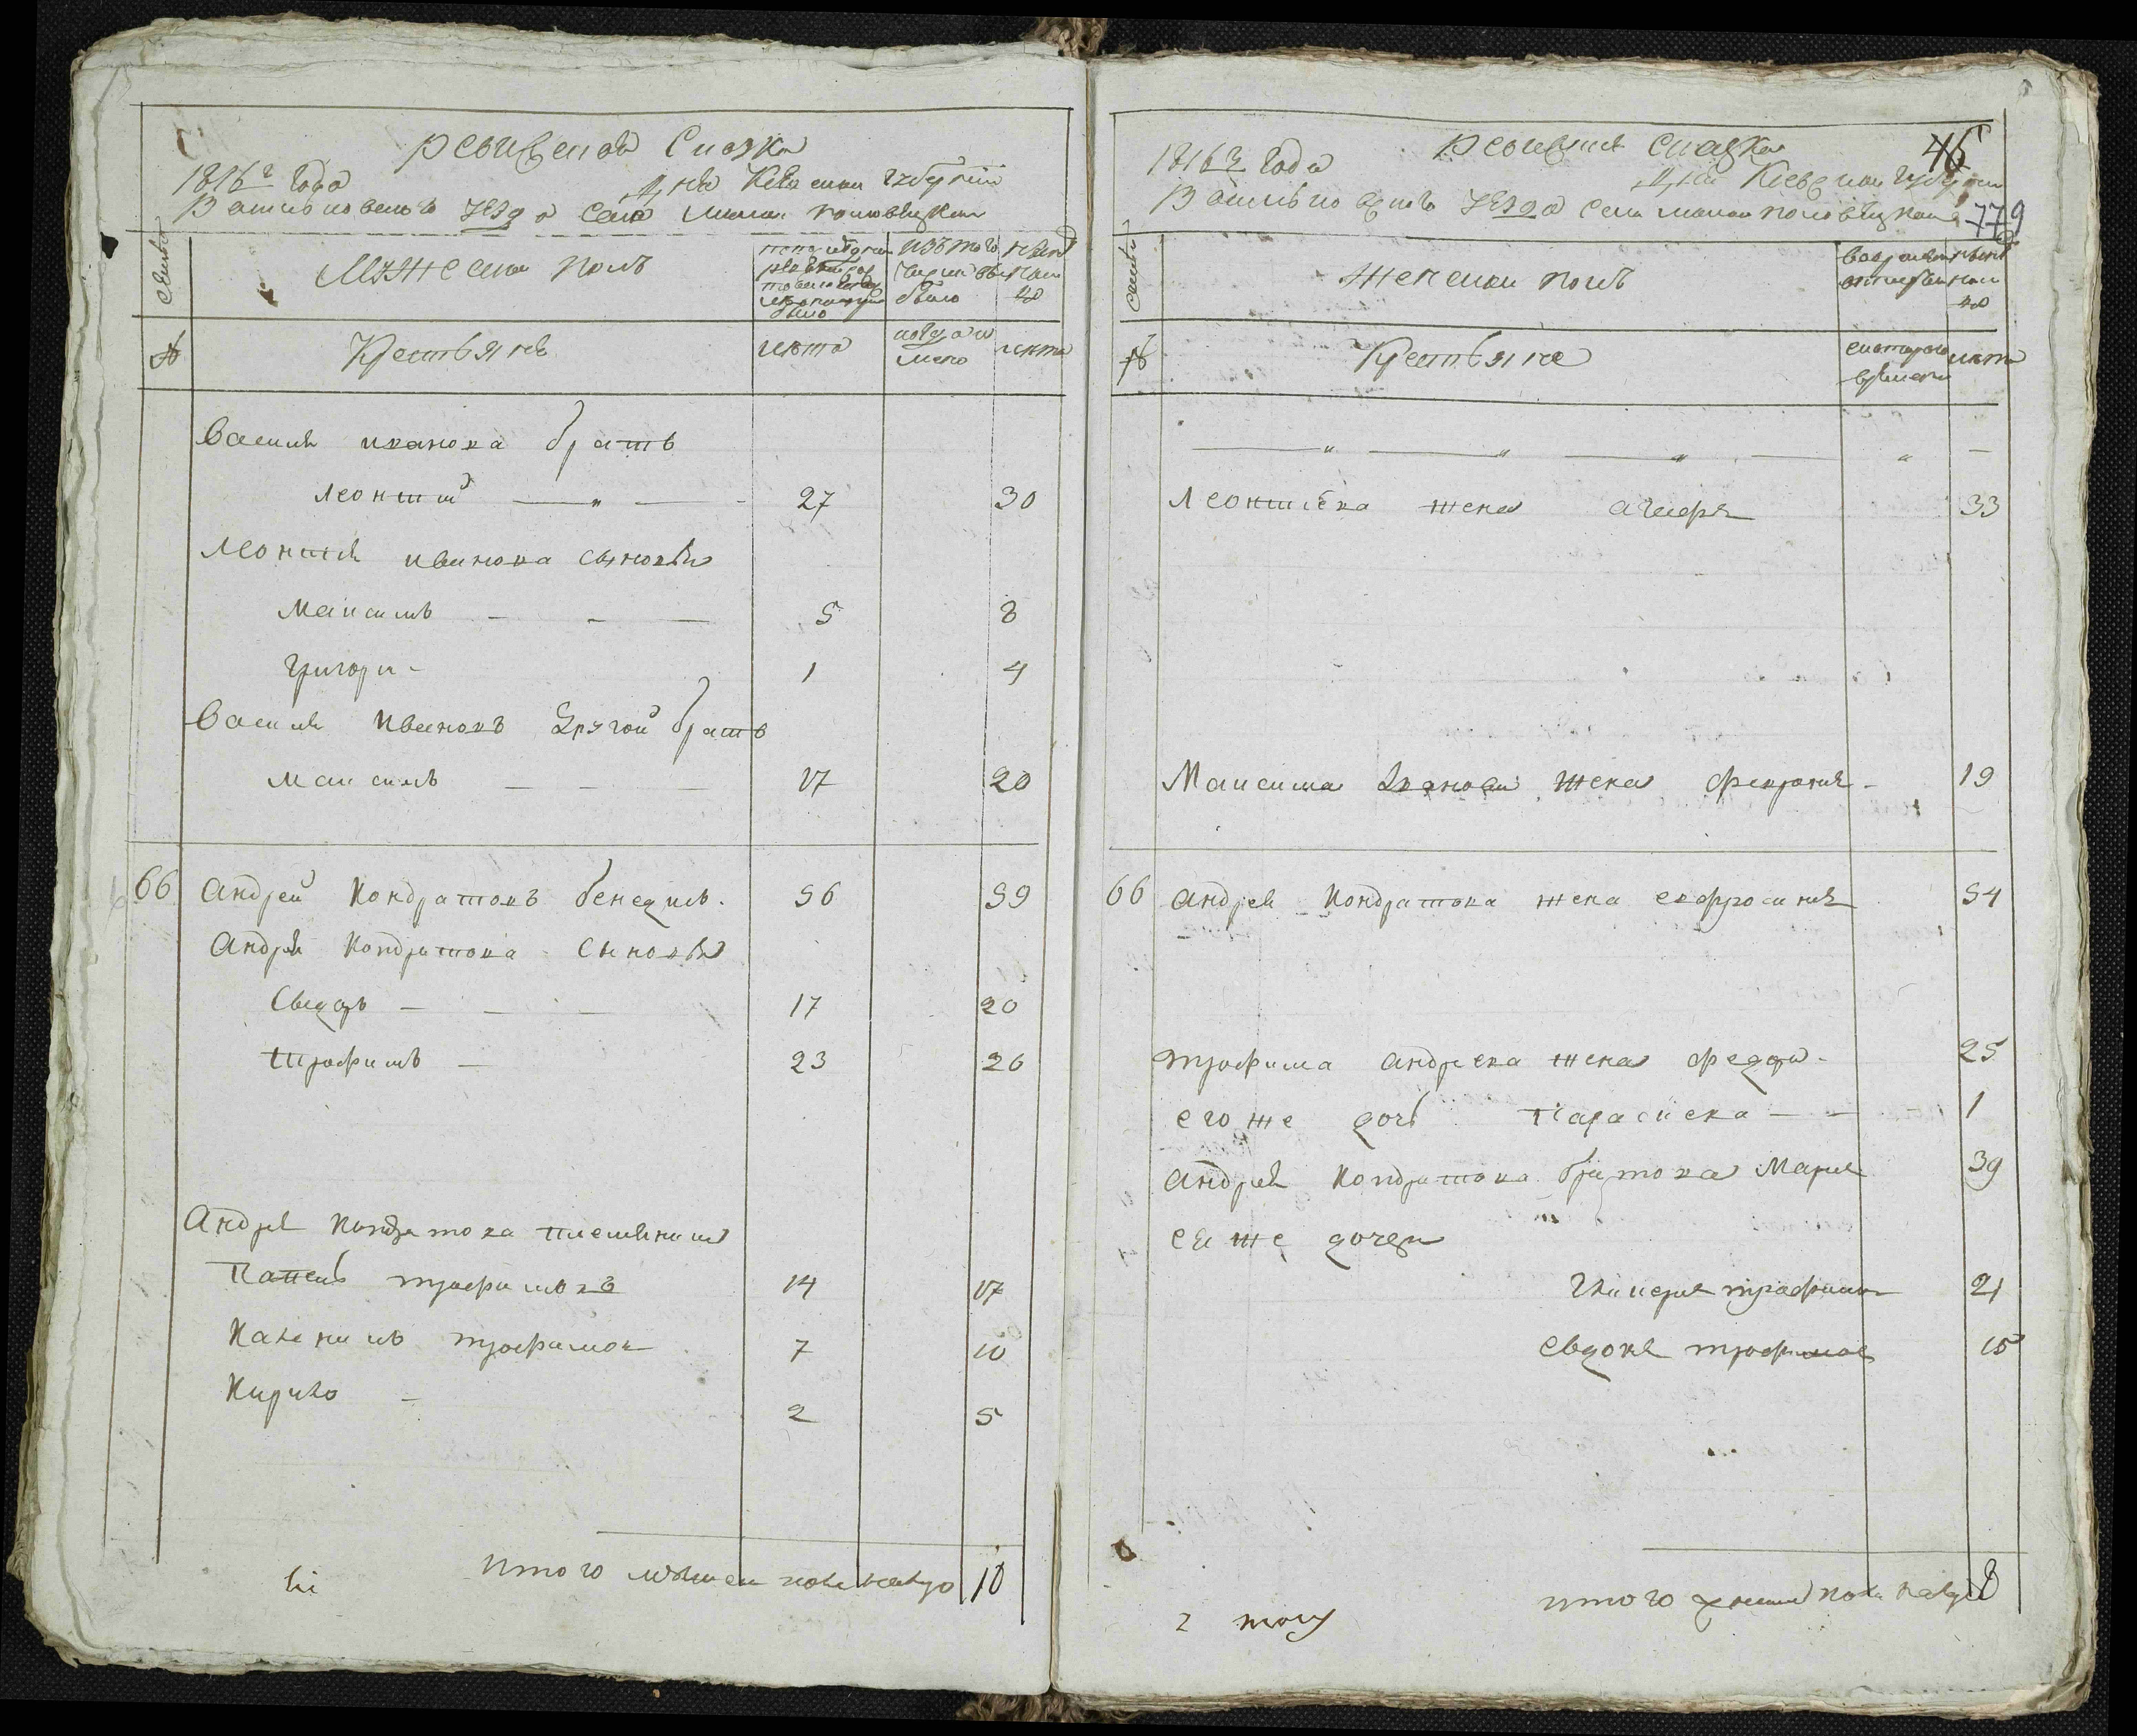 Ревизская Сказка
1816го года дня Киевской губернии
Васильковскаго уезда села Малой Половецкой
семьи
Мужеской полъ
по последней ревизии было
изъ того числа выбыло
ныне на лицо
№
Крестьяне
лета
когда имено
лета
Василя иванова братъ
Леонтий — " — 27 30
Леонтия иванова сыновья
Максимъ - - — 5 8
Григори - 1 4
Василя Ивановъ другой братъ
Максимъ — - — 17 20
66 Андрей Кондратовъ бенедикъ. 56 59
Андрея Кондратова Сыновья
Сидоръ — - - 17 20
Трофимъ — 23 26
Андрея Кондратова племяники
Павелъ трофимовъ 14 17
трофимов 7 10
Кирило - 2 5
итого мужеска пола налицо 10
Ревизская Сказка
46
1816го года дня Киевской губернии
Васильковскаго уезда села Малой Половецкой
779
семьи
Женской полъ
во временной отлучке
ныне на лицо
№
Крестьяне
с котораго времени
лета
— " — " — " — " -
Леонтиева жена 33
Максима Иванова жена Феврония - 19
66 Андрея Кондратова жена евфросиния 54
трофима андреева жена федора - 25
его же дочь Параскева — - - 1
Андрея Кондратова братова Мария 39
ея же дочери
Гликерия трофимов 21
Евдокия трофимов 15
итого женска пола налицо 8